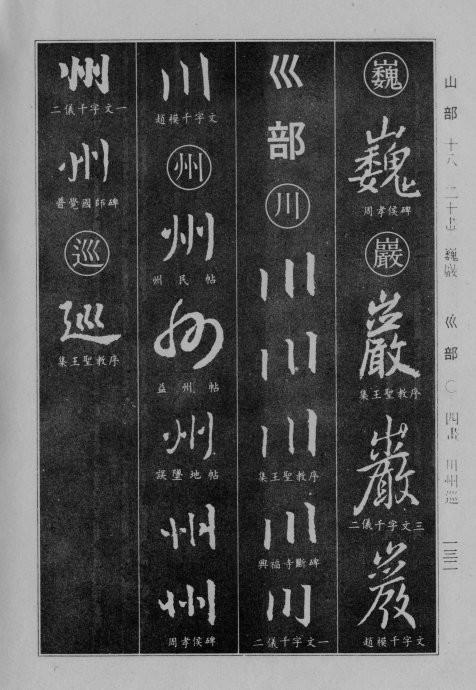 山部 十八 二十畫 巍巖 巛部 〇 四畫 川州巡 一三二
巍
巍
周孝侯碑
巖
巖
集王聖教序
巖
二儀千字文三
巖
趙模千字文
巛部
川
川
川
川
集王聖教序
川
興福寺斷碑
川
二儀千字文一
川
趙模千字文
州
州
州民帖
州
益州帖
州
誤墜地帖
州
州
周孝侯碑
州
二儀千字文一
州
普覺國師碑
巡
巡
集王聖教序